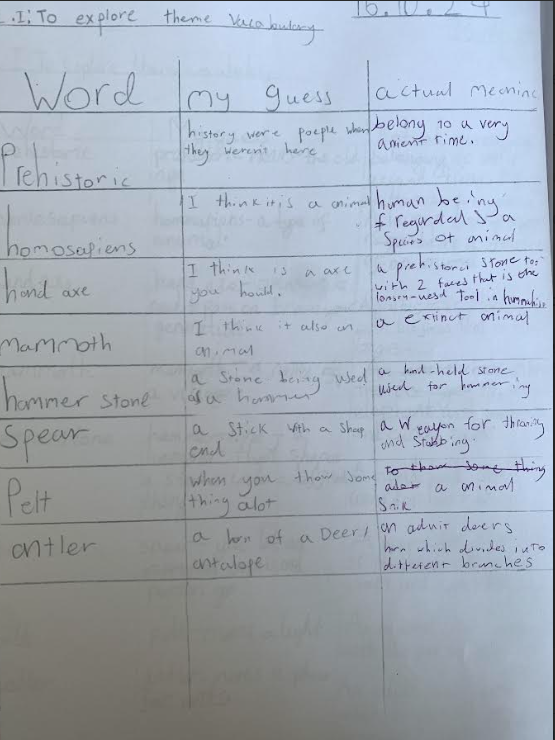 L.I: To explore theme Vocabulary
16.10.24
Word
my guess
actual meaning
Prehistoric
history were poeple when
they werent here
belong to a very
anient time.
homosapiens
I think it is a animal
human being
f regarded s a
Spacies of animal
hand axe
I think is a axe
you hould.
a prehistoric stone too
with 2 faces that is the
longest-uesd tool in
mammoth
I think it also an
animal
a extinct animal
hammer stone
a Stone being used
as a hammer
a hand-held stone
used for hammering
Spear
a Stick with a Shap
end
a weapon for throwing
and Stabbing.
Pelt
when you thow some
thing alot
To thow some thing
alot a animal
Snik
antler
a horn of a Deer /
antalope
an adult deers
horn which divides into
different branches